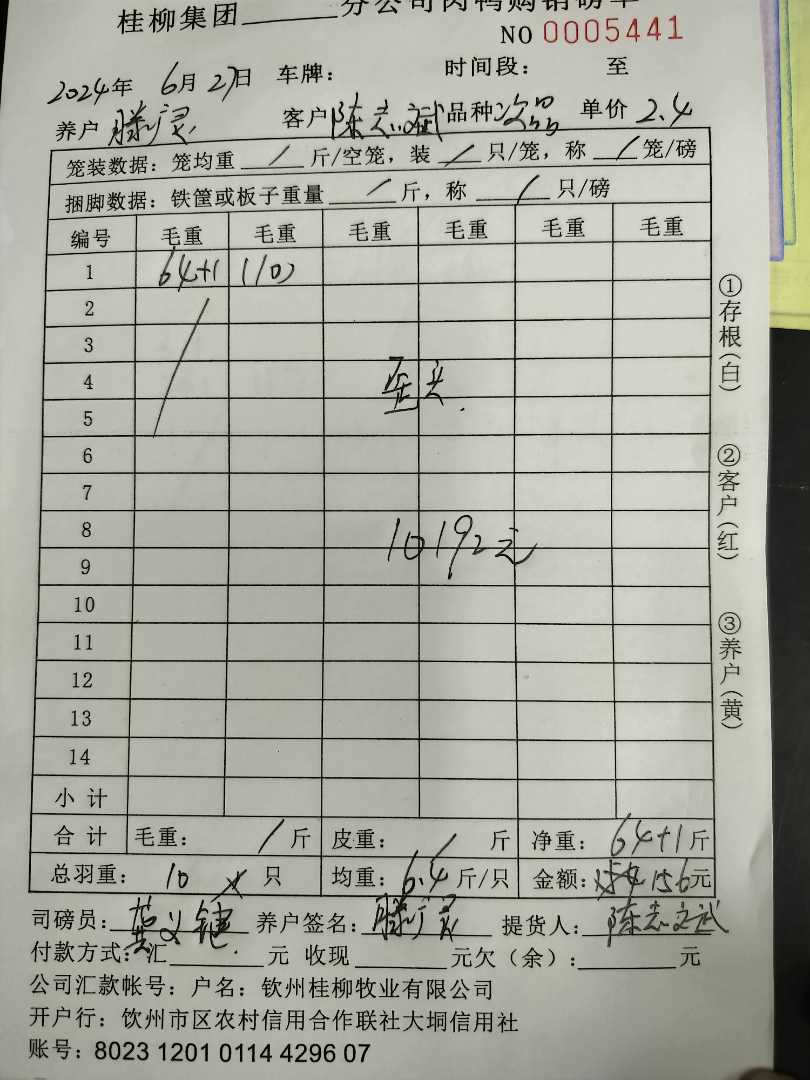 桂柳集团______分公司肉鸭购销磅单
NO 0005441
2024年 6月27日 车牌： 时间段： 至
养户 滕广灵 客户 陈志斌 品种 次品 单价 2.4
笼装数据：笼均重 / 斤/空笼，装 / 只/笼，称 / 笼/磅
捆脚数据：铁筐或板子重量 / 斤，称 / 只/磅
编号 毛重 毛重 毛重 毛重 毛重 毛重
1 64+1 (10)
2
3
4 歪头.
5
6
7
8 10192元
9
10
11
12
13
14
小 计
合 计 毛重： / 斤 皮重： / 斤 净重： 64+1 斤
总羽重： 10 只 均重： 6.4 斤/只 金额： 156元
司磅员： 养户签名： 滕广灵 提货人： 陈志斌
付款方式：汇______元 收现______元欠（余）：______元
公司汇款帐号：户名：钦州桂柳牧业有限公司
开户行：饮州市区农村信用合作联社大垌信用社
账号：8023 1201 0114 4296 07
①存根（白） ②客户（红） ③养户（黄）